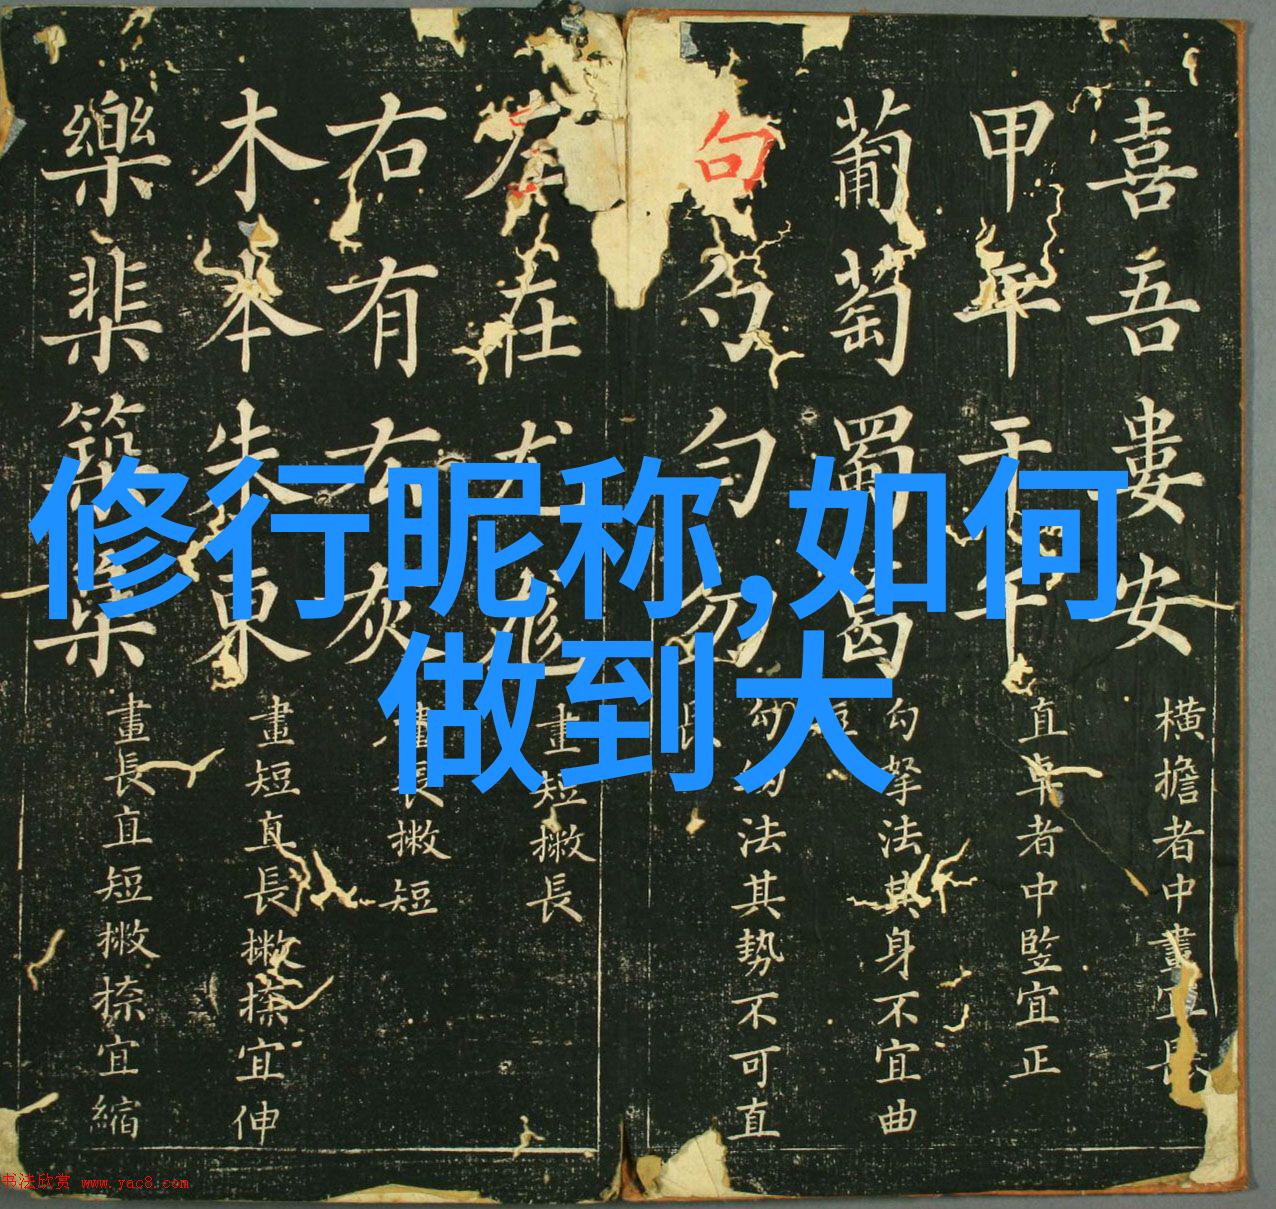 修行昵称,如何
做到大
喜吾婁安
横擔者中畫宜長
甲平干午
直卓者中竪宜正
葡萄蜀曷
勾拏法其身不宜曲
句勺勻勿
法其勢不可直
左在尤尨
畫短撇長
右有右灰
畫長撇短
木本朱東
畫短直長撇捺宜伸
樂棐築
畫長直短撇捺宜縮
书法欣赏 www.yac8.com